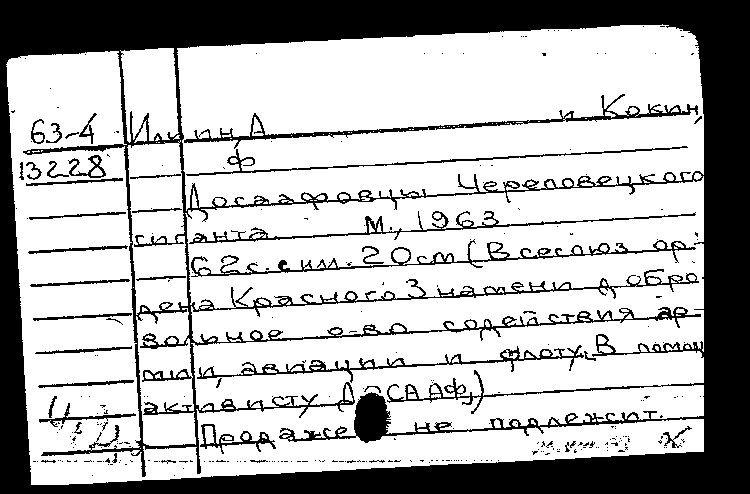 63-4 Ильин, А и Кокин,
13228 Ф
Досаафовцы Череповецкого
гиганта М., 1963
62с. с илл. 20см (Всесоюз ор-
дена Красного Знамени добро-
вольное о-во содействия ар-
мии, авиации и флоту. В помощ
активисту ДОСААФ.)
Продаже не подлежит.